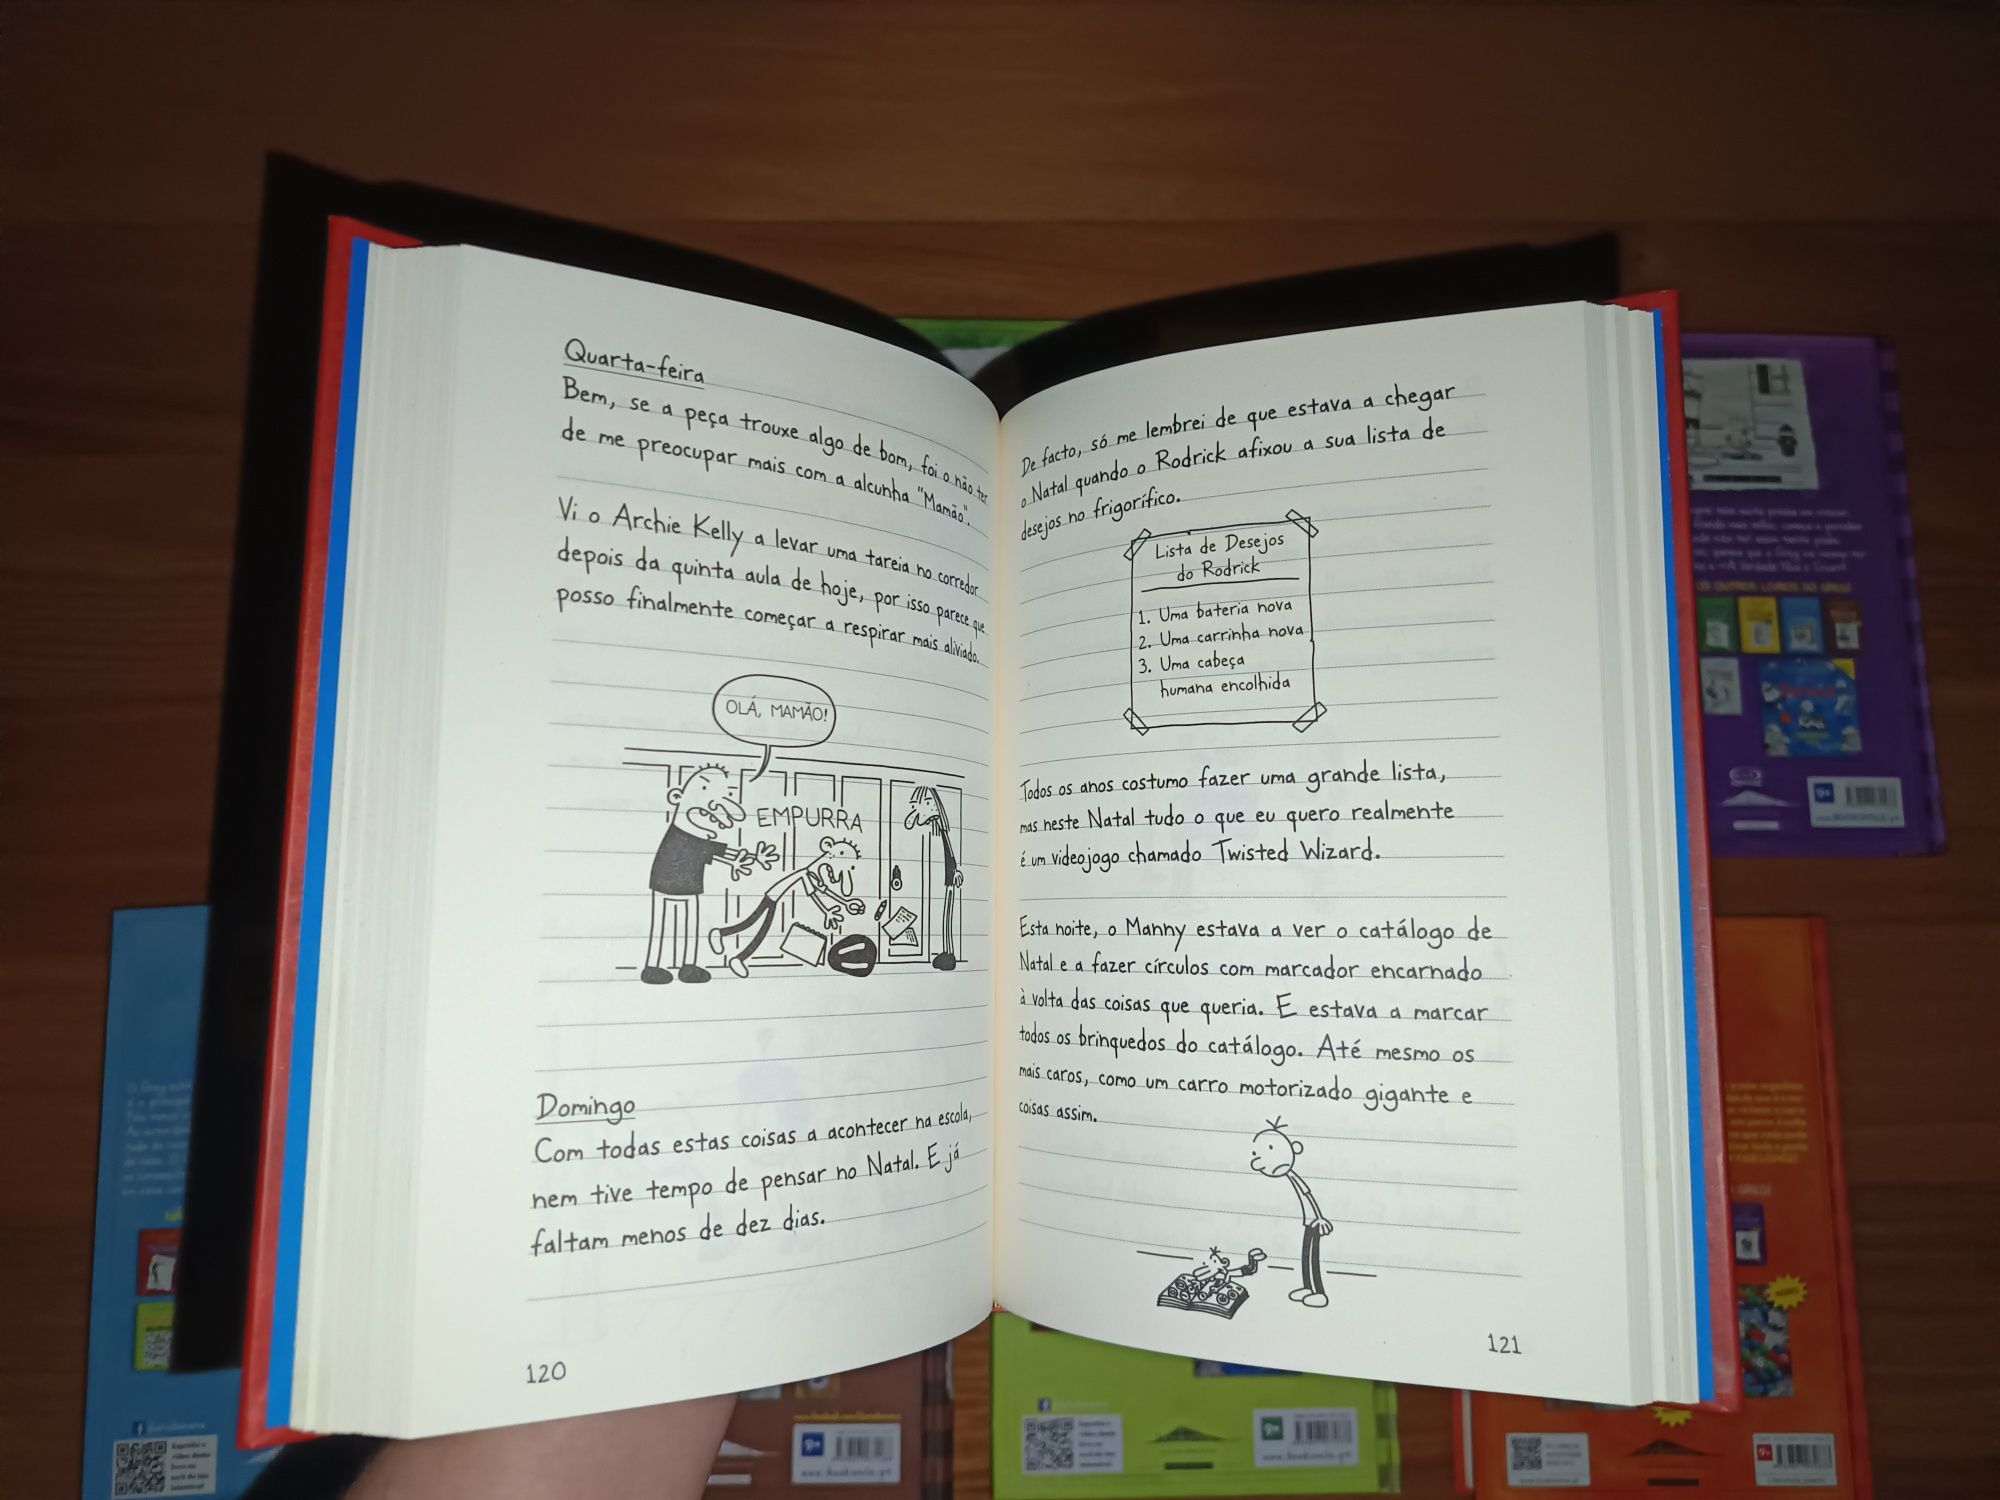 Quarta-feira
Bem, se a peça trouxe algo de bom, foi o não ter
de me preocupar mais com a alcunha "Mamão".
Vi o Archie Kelly a levar uma tareia no corredor
depois da quinta aula de hoje, por isso parece que
posso finalmente começar a respirar mais aliviado.
OLÁ, MAMÃO!
EMPURRA
Domingo
Com todas estas coisas a acontecer na escola,
nem tive tempo de pensar no Natal. E já
faltam menos de dez dias.
120
De facto, só me lembrei de que estava a chegar
o Natal quando o Rodrick afixou a sua lista de
desejos no frigorífico.
Lista de Desejos
do Rodrick
1. Uma bateria nova
2. Uma carrinha nova
3. Uma cabeça
humana encolhida
Todos os anos costumo fazer uma grande lista,
mas neste Natal tudo o que eu quero realmente
é um videojogo chamado Twisted Wizard.
Esta noite, o Manny estava a ver o catálogo de
Natal e a fazer círculos com marcador encarnado
à volta das coisas que queria. E estava a marcar
todos os brinquedos do catálogo. Até mesmo os
mais caros, como um carro motorizado gigante e
coisas assim.
121
OS OUTROS LIVROS DO GREG!